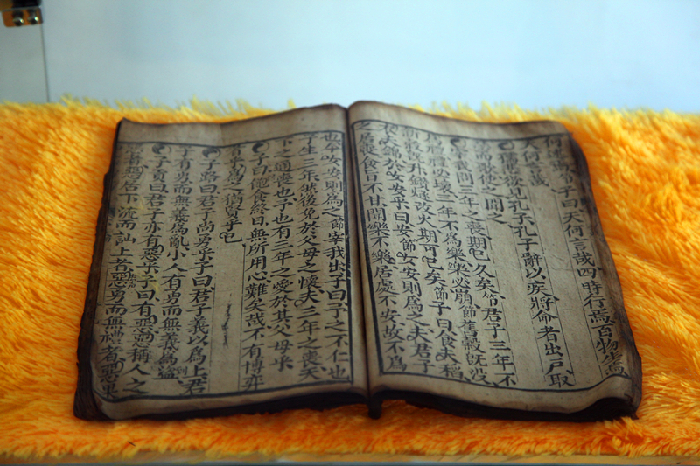 何述焉子曰天何言哉四時行焉百物生焉
天何言哉
孺悲欲見孔子孔子辭以疾將命者出戶取
瑟而歌使之聞之
宰我問三年之喪期已久矣節君子三年不
為禮禮必壞三年不為樂樂必崩節舊穀既沒
新穀既升鑽燧改火期可已矣節子曰食夫稻
衣夫錦於女安乎曰安節女安則為之夫君子
居喪食旨不甘聞樂不樂居處不安故不為
也今女安則為之節宰我出子曰予之不仁也
子生三年然後免於父母之懷夫三年之喪天
下之通喪也予也有三年之愛於其父母乎
子曰飽食終日無所用心難矣哉不有博弈
者乎為之猶賢乎已
子路曰君子尚勇乎子曰君子義以為上君
子有勇而無義為亂小人有勇而無義為盜
子貢曰君子亦有惡乎子曰有惡惡稱人之
惡者惡居下流而訕上者惡勇而無禮者惡果